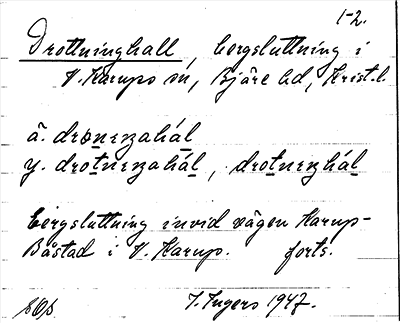 1-2.
Drottninghall, bergsluttning i
V. Karups sn, Bjäre hd, Krist. l.
ä. dronenzahál
y. drotnenzahál, drotnenzhál
Bergsluttning invid vägen Karup-
Båstad i V. Karup. forts.
SOS I. Ingers 1947.